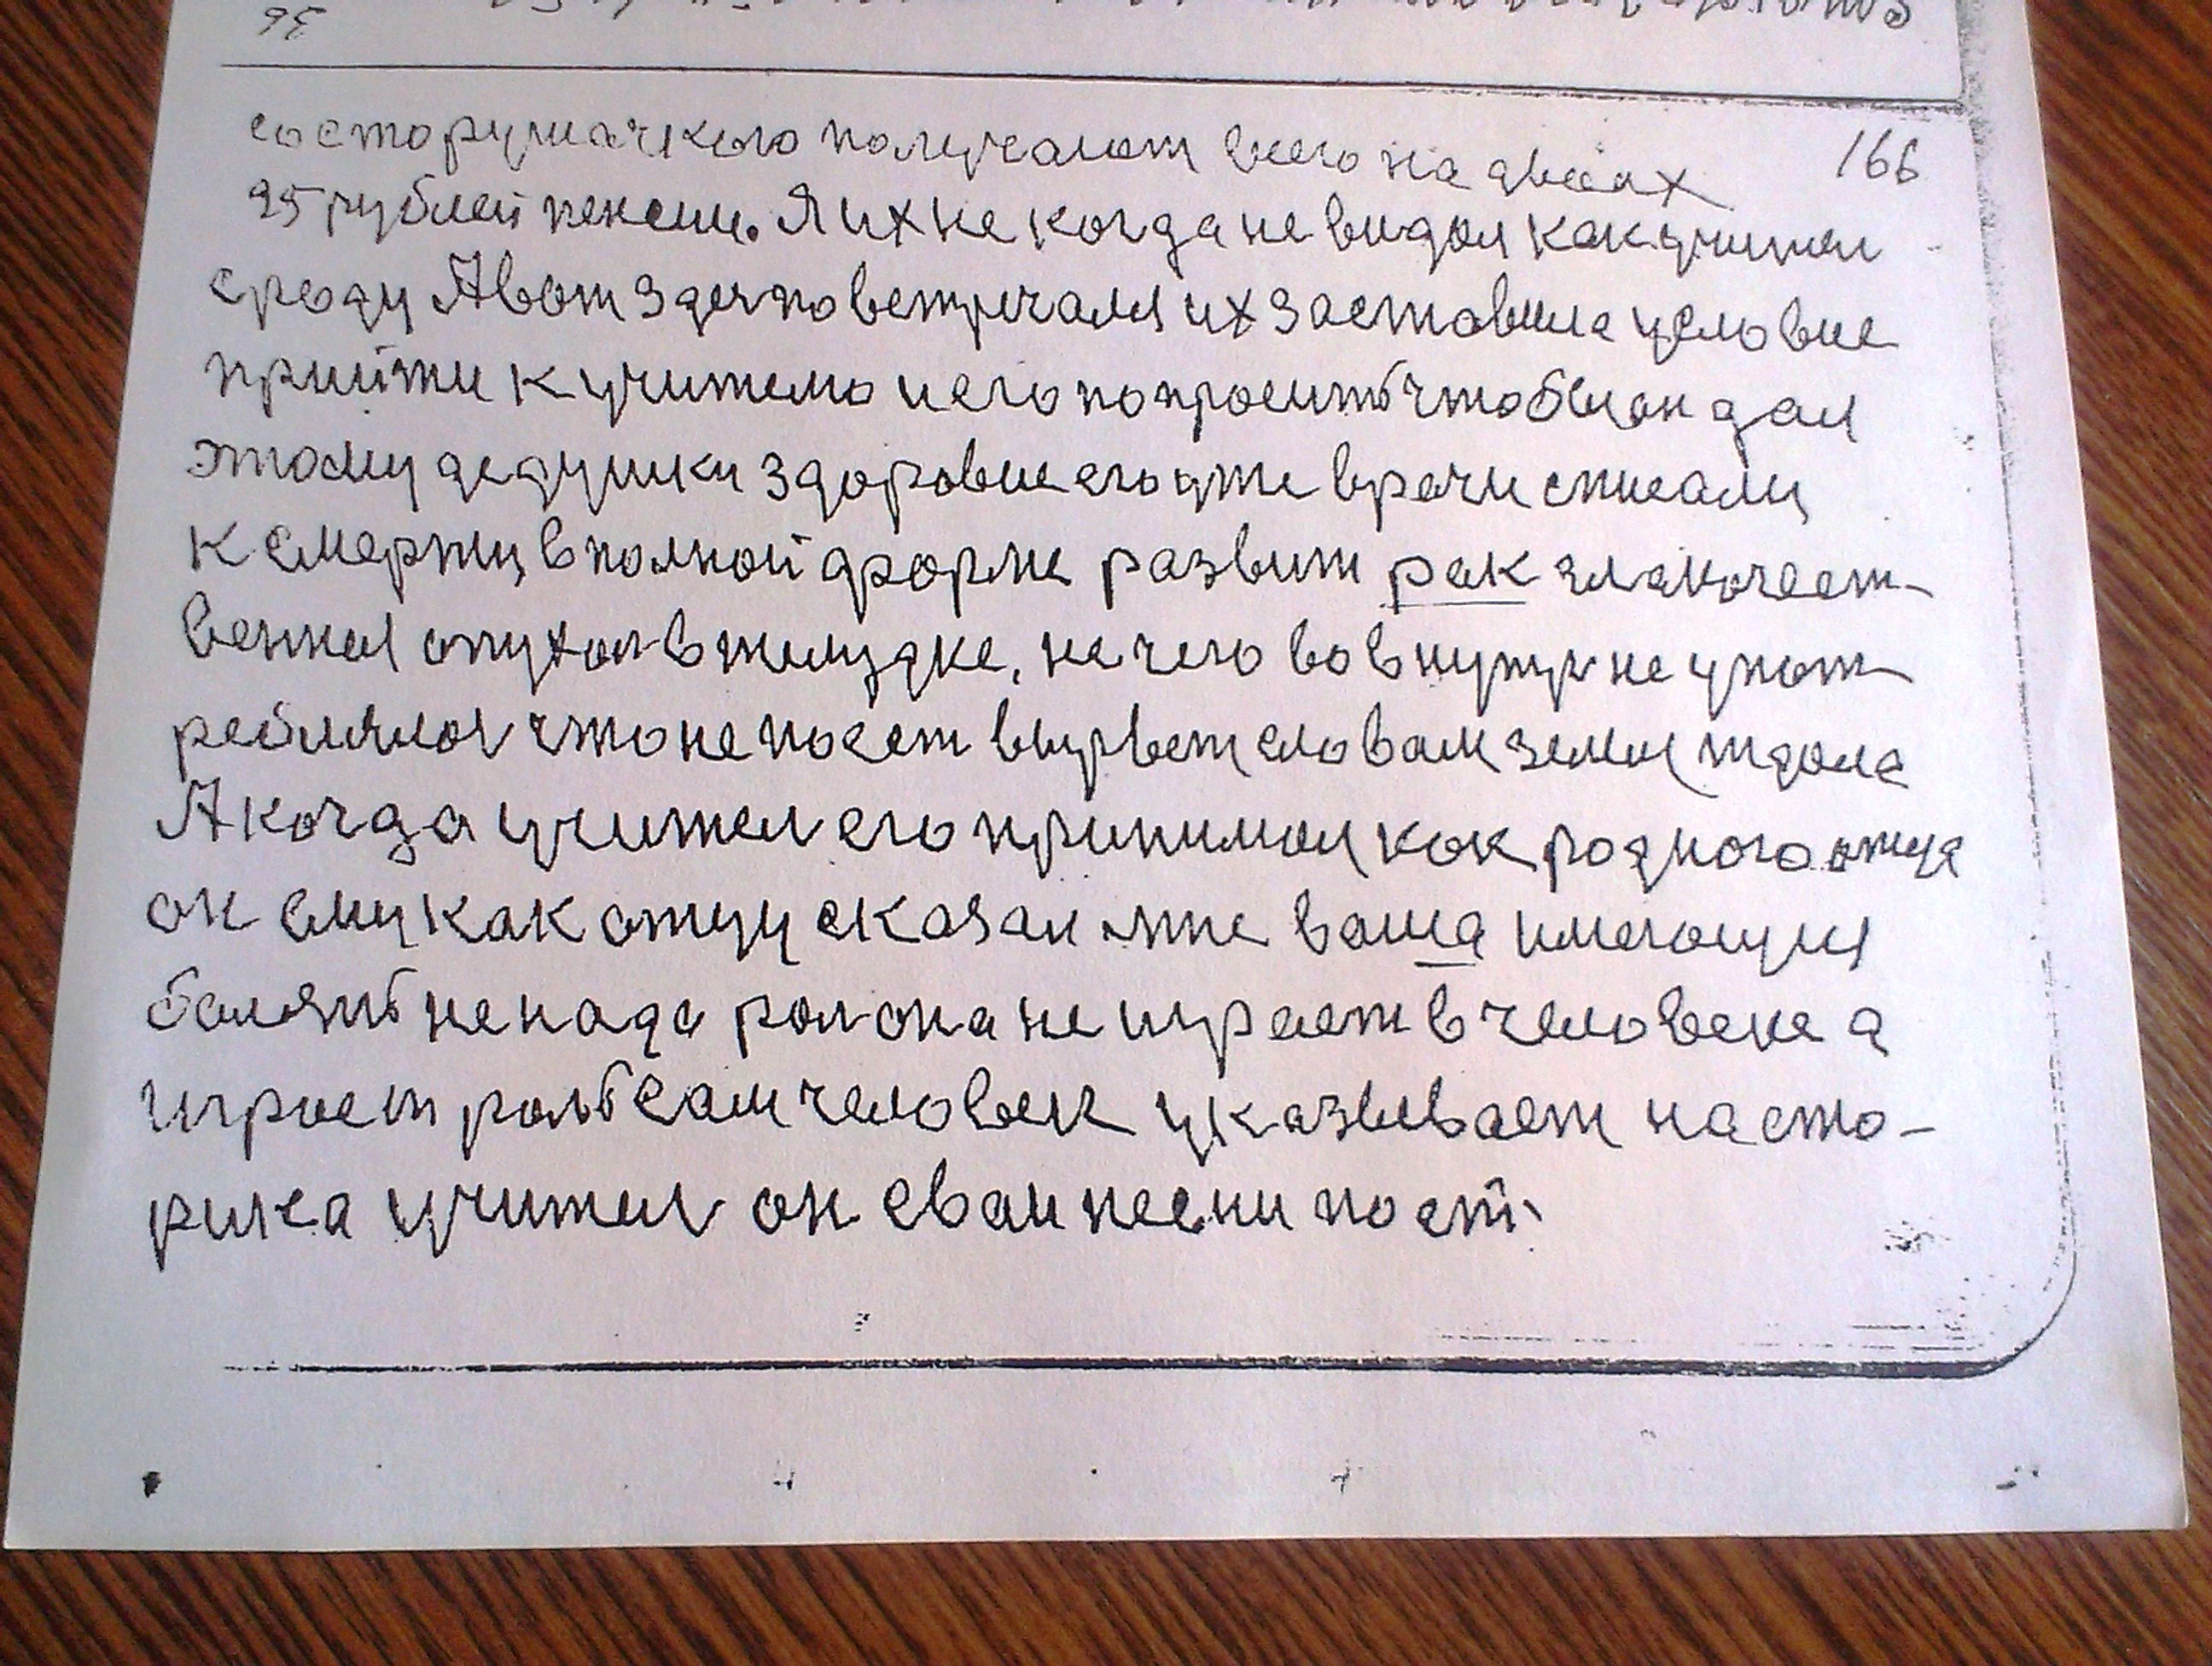 166
со старушачкою получают всего на двоих
25 рублей пенсии. Я их не когда не видал как учител
среду А вот здесь повстречался их заставила условие
прийти к учителю и его попросить чтобы он дал
этому дедушки здоровие его уже врачи списали
к смерти, в полной форме развит рак злакочест-
венная опухол в желудке, не чего во внутр не упот-
реблялос что не поест вырвет словам земля ждала
А когда учител его принимал как родного отца
он ему как отцу сказал мне ваша имеющия
болезнь не нада рол она не играет в человеке а
играет роль сам человек указывает на ста-
рика учител он свои песни поет